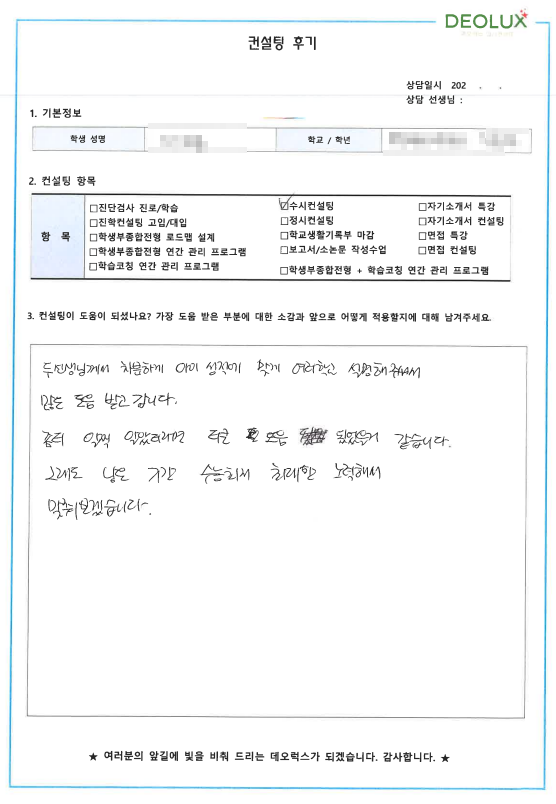 DEOLUX
컨설팅 후기
상담일시 202 . .
상담 선생님 :
1. 기본정보
학생 성명 학교 / 학년
2. 컨설팅 항목
항 목
□진단검사 진로/학습 ☑수시컨설팅 □자기소개서 특강
□진학컨설팅 고입/대입 □정시컨설팅 □자기소개서 컨설팅
□학생부종합전형 로드맵 설계 □학교생활기록부 마감 □면접 특강
□학생부종합전형 연간 관리 프로그램 □보고서/소논문 작성수업 □면접 컨설팅
□학습코칭 연간 관리 프로그램 □학생부종합전형 + 학습코칭 연간 관리 프로그램
3. 컨설팅이 도움이 되셨나요? 가장 도움 받은 부분에 대한 소감과 앞으로 어떻게 적용할지에 대해 남겨주세요.
두선생님께서 차분하게 아이 성적에 맞게 여러학교 설명해주셔서
많은 도움 받고 갑니다.
좀더 일찍 알았더라면 더큰 도움 되었을거 같습니다.
그래도 남은 기간 수능최저 최대한 노력해서
맞춰보겠습니다.
★ 여러분의 앞길에 빛을 비춰 드리는 데오럭스가 되겠습니다. 감사합니다. ★